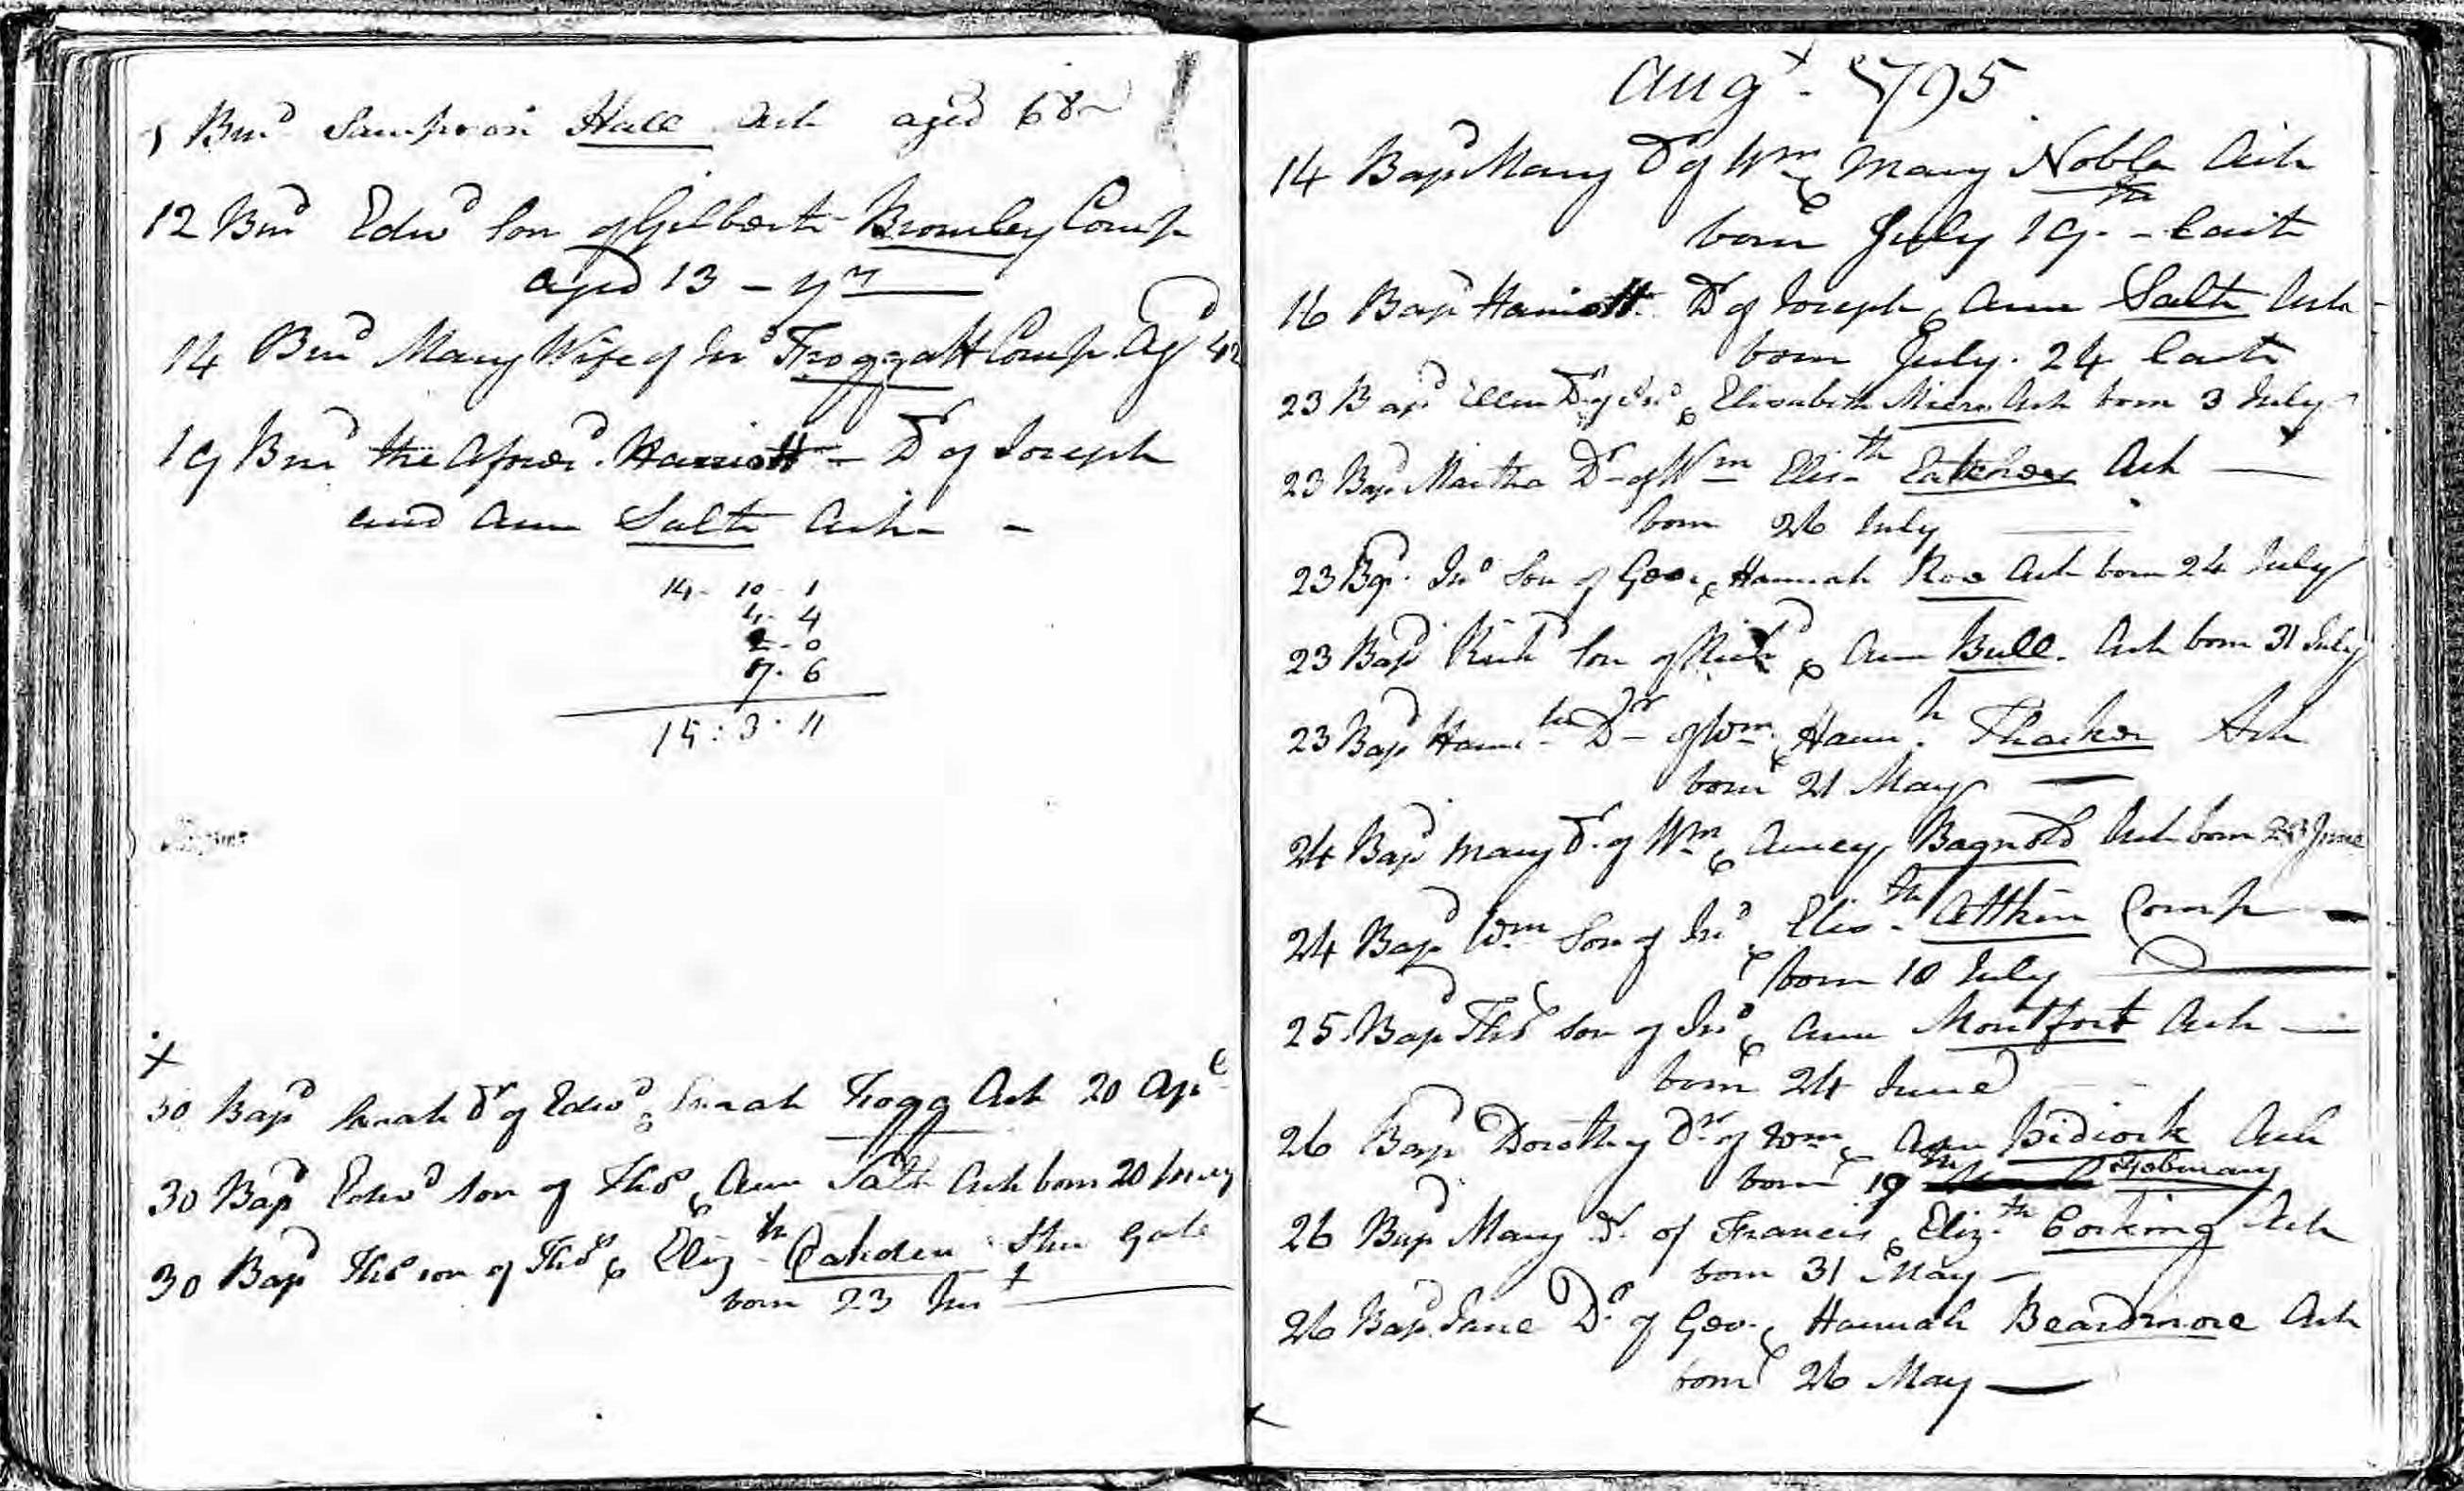 5 Burd Sampson Hall Ash aged 68
12 Burd Edwd Son of Gilbert Bromley Comp
aged 13 - yrs
14 Burd Mary Wife of Jno Froggatt Comp Agd 42
19 Burd the Afores.d Harriott - Dr of Joseph
and Ann Salt Ash -
14 - 10 - 1
4 - 4
2 - 0
7 - 6
15 : 3 : 11
+
30 Bapd Sarah Dr of Edwd & Sarah Fogg Ash 20 Apl
30 Bapd Edwd son of Thos & Ann Salt Ash born 20
30 Bapd Thos son of Thos & Eliz.th Gate
born 23 Inst
Augt. 1795
14 Bapd Mary Dr of Wm & Mary Noble Ash
born July 19.th - last
16 Bapd Harriott Dr of Joseph & Ann Salt Ash
born July. 24 last
23 Bapd Ellen Dr of Jno & Elisabeth Ash born 3 July
23 Bapd Martha Dr of Wm Elis.th Ash
born 26 July
23 Bapd. Jno Son of Geo. & Hannah Roe Ash born 24 July
23 Bapd Richd Son of Richd & Ann Bull. Ash born 31 July
23 Bapd Hannh Dr of Wm & Hann.h Thacker Ash
born 21 May
24 Bapd Mary Dr. of Wm & Amey Bagnold Ash born June
24 Bapd Wm Son of Jno & Elis.th Attkin Comp
born 10 July
25 Bapd Thos Son of Jno & Ann Montfort Ash
born 24 June
26 Bapd Dorothy Dr of Wm & Ann Pidcock Ash
born 19th February
26 Bapd Mary Dr. of Francis & Eliz.th Corking Ash
born 31 May -
26 Bapd Jane Dr. of Geo. & Hannah Beardmore Ash
born 26 May